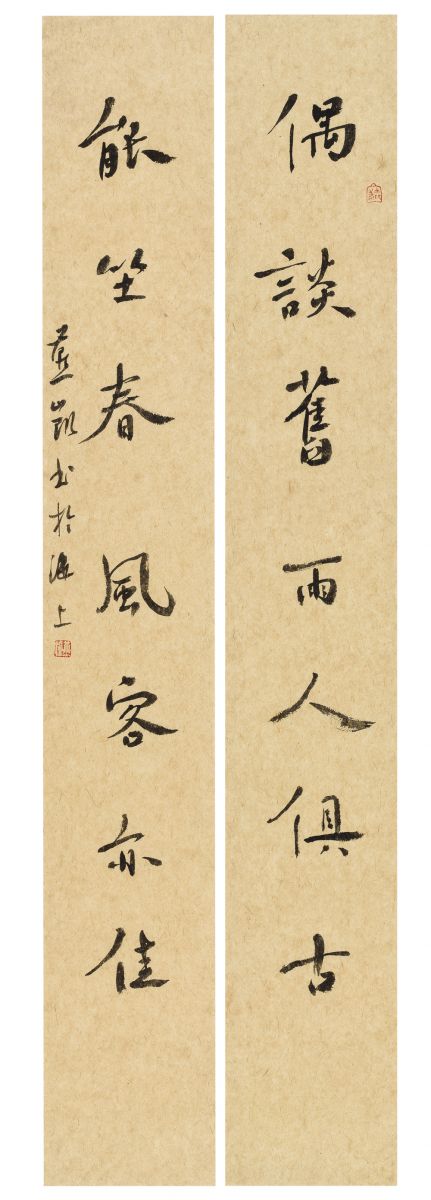 偶談舊雨人俱古
能坐春風客亦佳
燕凱書於海上